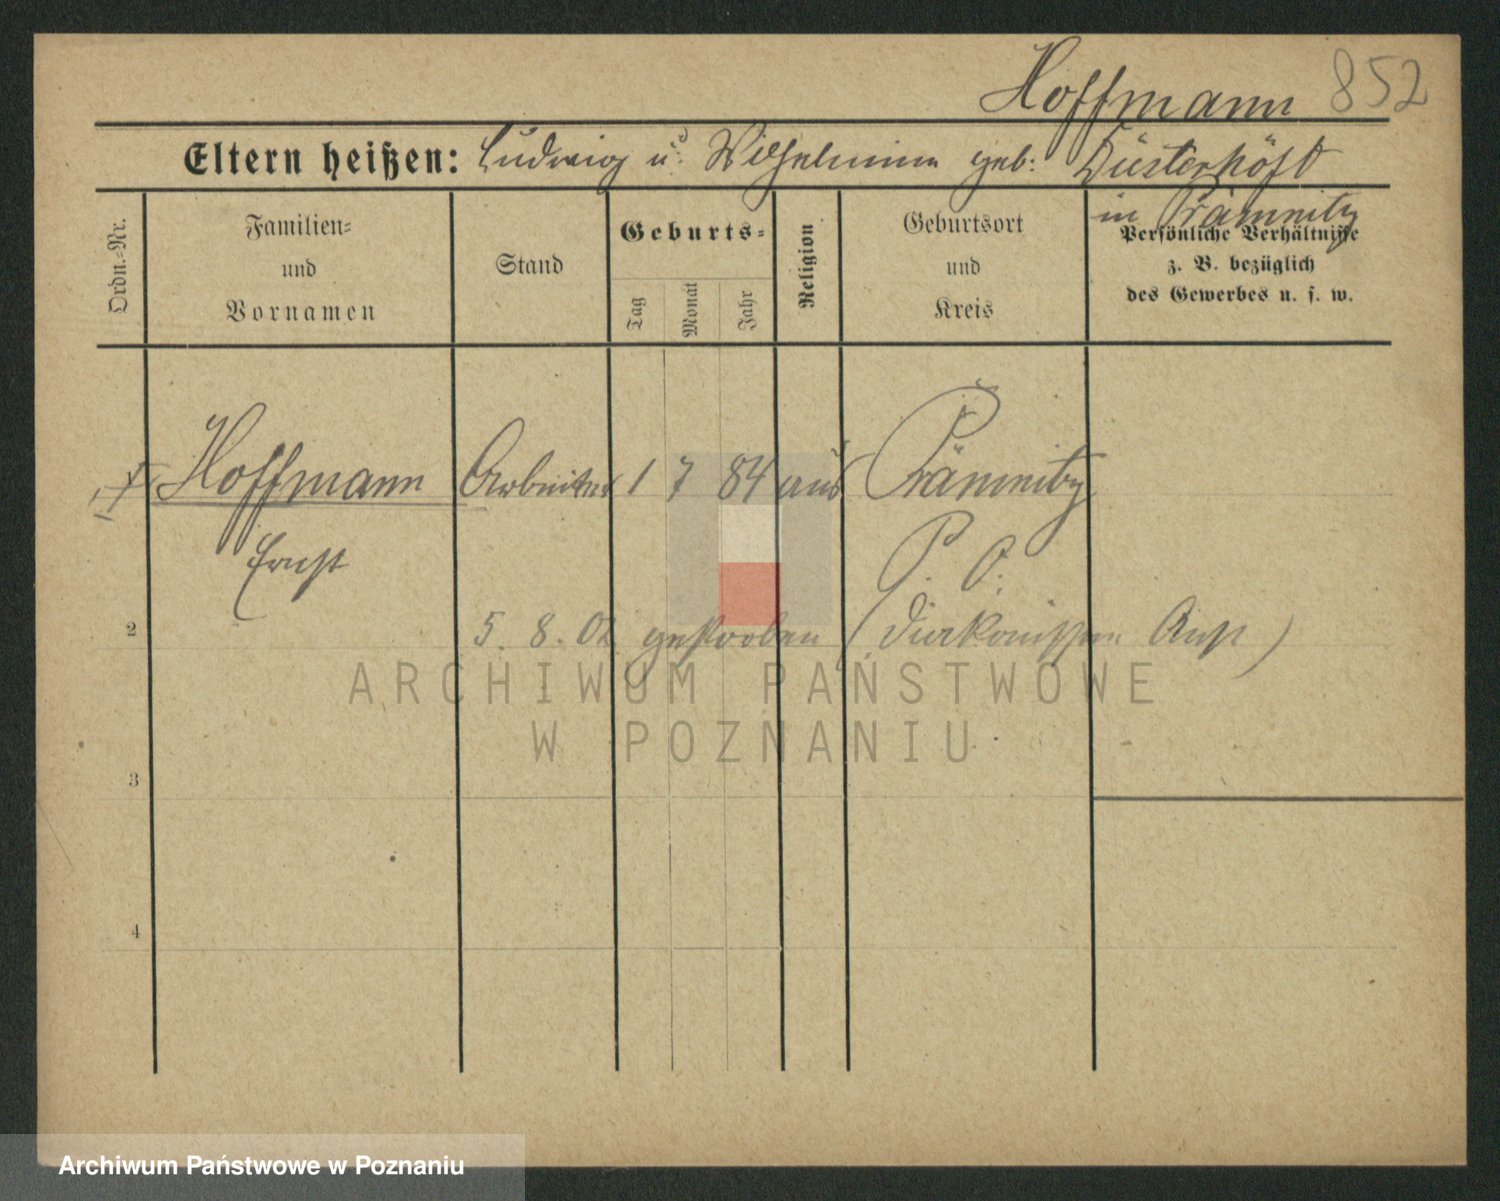 Hoffmann 852
Eltern heißen: Ludwig u. Wilhelmine geb: Düsterhöft
in Prämnitz
Ordn.-Nr.
Familien-
und
Vornamen
Stand
Geburts-
Tag
Monat
Jahr
Religion
Geburtsort
und
Kreis
Persönliche Verhältnisse
z. B. bezüglich
des Gewerbes u. s. w.
Hoffmann Arbeiter 1 7 84 Prämnitz
Ernst P. O.
2 5. 8. 02 gestorben (Diakonissen Anst)
3
4
ARCHIWUM PAŃSTWOWE
W POZNANIU
Archiwum Państwowe w Poznaniu